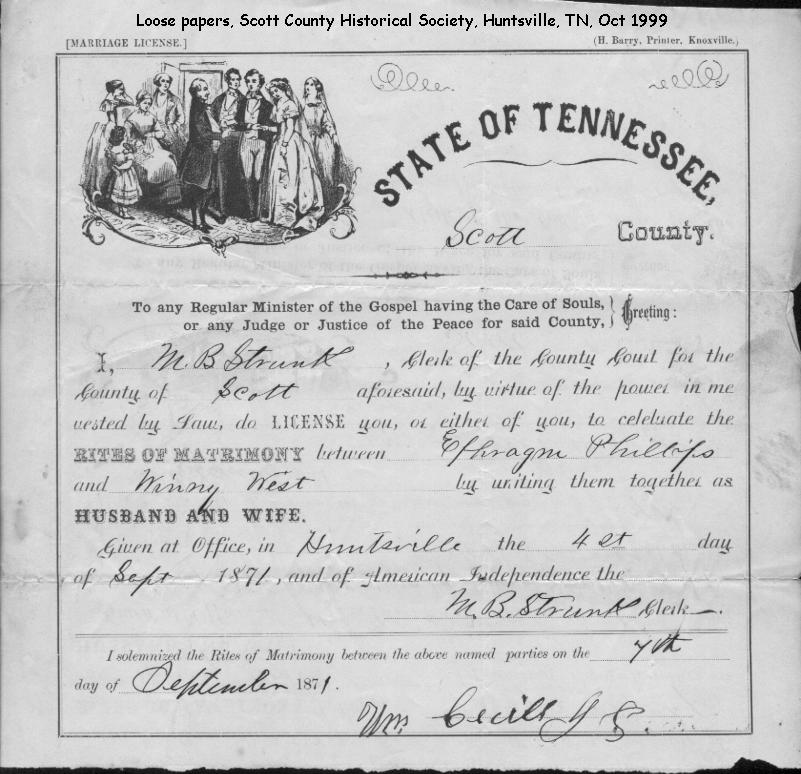 Loose papers, Scott County Historical Society, Huntsville, TN, Oct 1999
[MARRIAGE LICENSE.] (H. Barry, Printer, Knoxville.)
STATE OF TENNESSEE,
Scott County.
To any Regular Minister of the Gospel having the Care of Souls,
or any Judge or Justice of the Peace for said County, } Greeting:
I, M. B Strunk, Clerk of the County Court for the
County of Scott aforesaid, by virtue of the power in me
vested by Law, do LICENSE you, or either of you, to celebrate the
RITES OF MATRIMONY between Ephragm Phillips
and Winny West by uniting them together as
HUSBAND AND WIFE.
Given at Office, in Huntsville the 4 st day
of Sept 1871, and of American Independence the
M. B. Strunk Clerk.
I solemnized the Rites of Matrimony between the above named parties on the 7th
day of September 1871.
Wm. Cecill